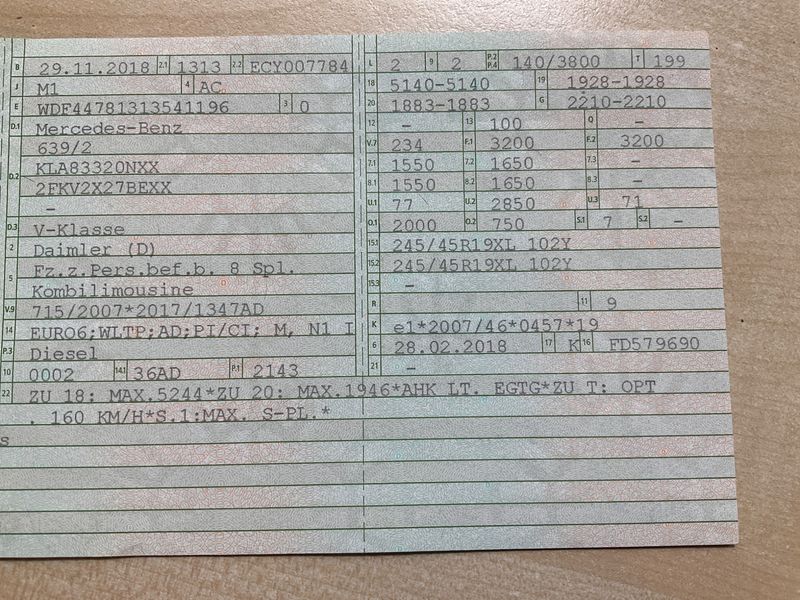 B 29.11.2018 2.1 1313 2.2 ECY007784
J M1 4 AC
E WDF44781313541196 3 0
D.1 Mercedes-Benz
639/2
D.2 KLA83320NXX
2FKV2X27BEXX
-
D.3 V-Klasse
2 Daimler (D)
5 Fz.z.Pers.bef.b. 8 Spl.
Kombilimousine
V.9 715/2007*2017/1347AD
14 EURO6;WLTP;AD;PI/CI; M, N1 I
P.3 Diesel
10 0002 14.1 36AD P.1 2143
L 2 9 2 P.2 P.4 140/3800 T 199
18 5140-5140 19 1928-1928
20 1883-1883 G 2210-2210
12 - 13 100 Q -
V.7 234 F.1 3200 F.2 3200
7.1 1550 7.2 1650 7.3 -
8.1 1550 8.2 1650 8.3 -
U.1 77 U.2 2850 U.3 71
O.1 2000 O.2 750 S.1 7 S.2 -
15.1 245/45R19XL 102Y
15.2 245/45R19XL 102Y
15.3 -
R 11 9
K e1*2007/46*0457*19
6 28.02.2018 17 K 16 FD579690
21 -
22 ZU 18: MAX.5244*ZU 20: MAX.1946*AHK LT. EGTG*ZU T: OPT
. 160 KM/H*S.1:MAX. S-PL.*
s